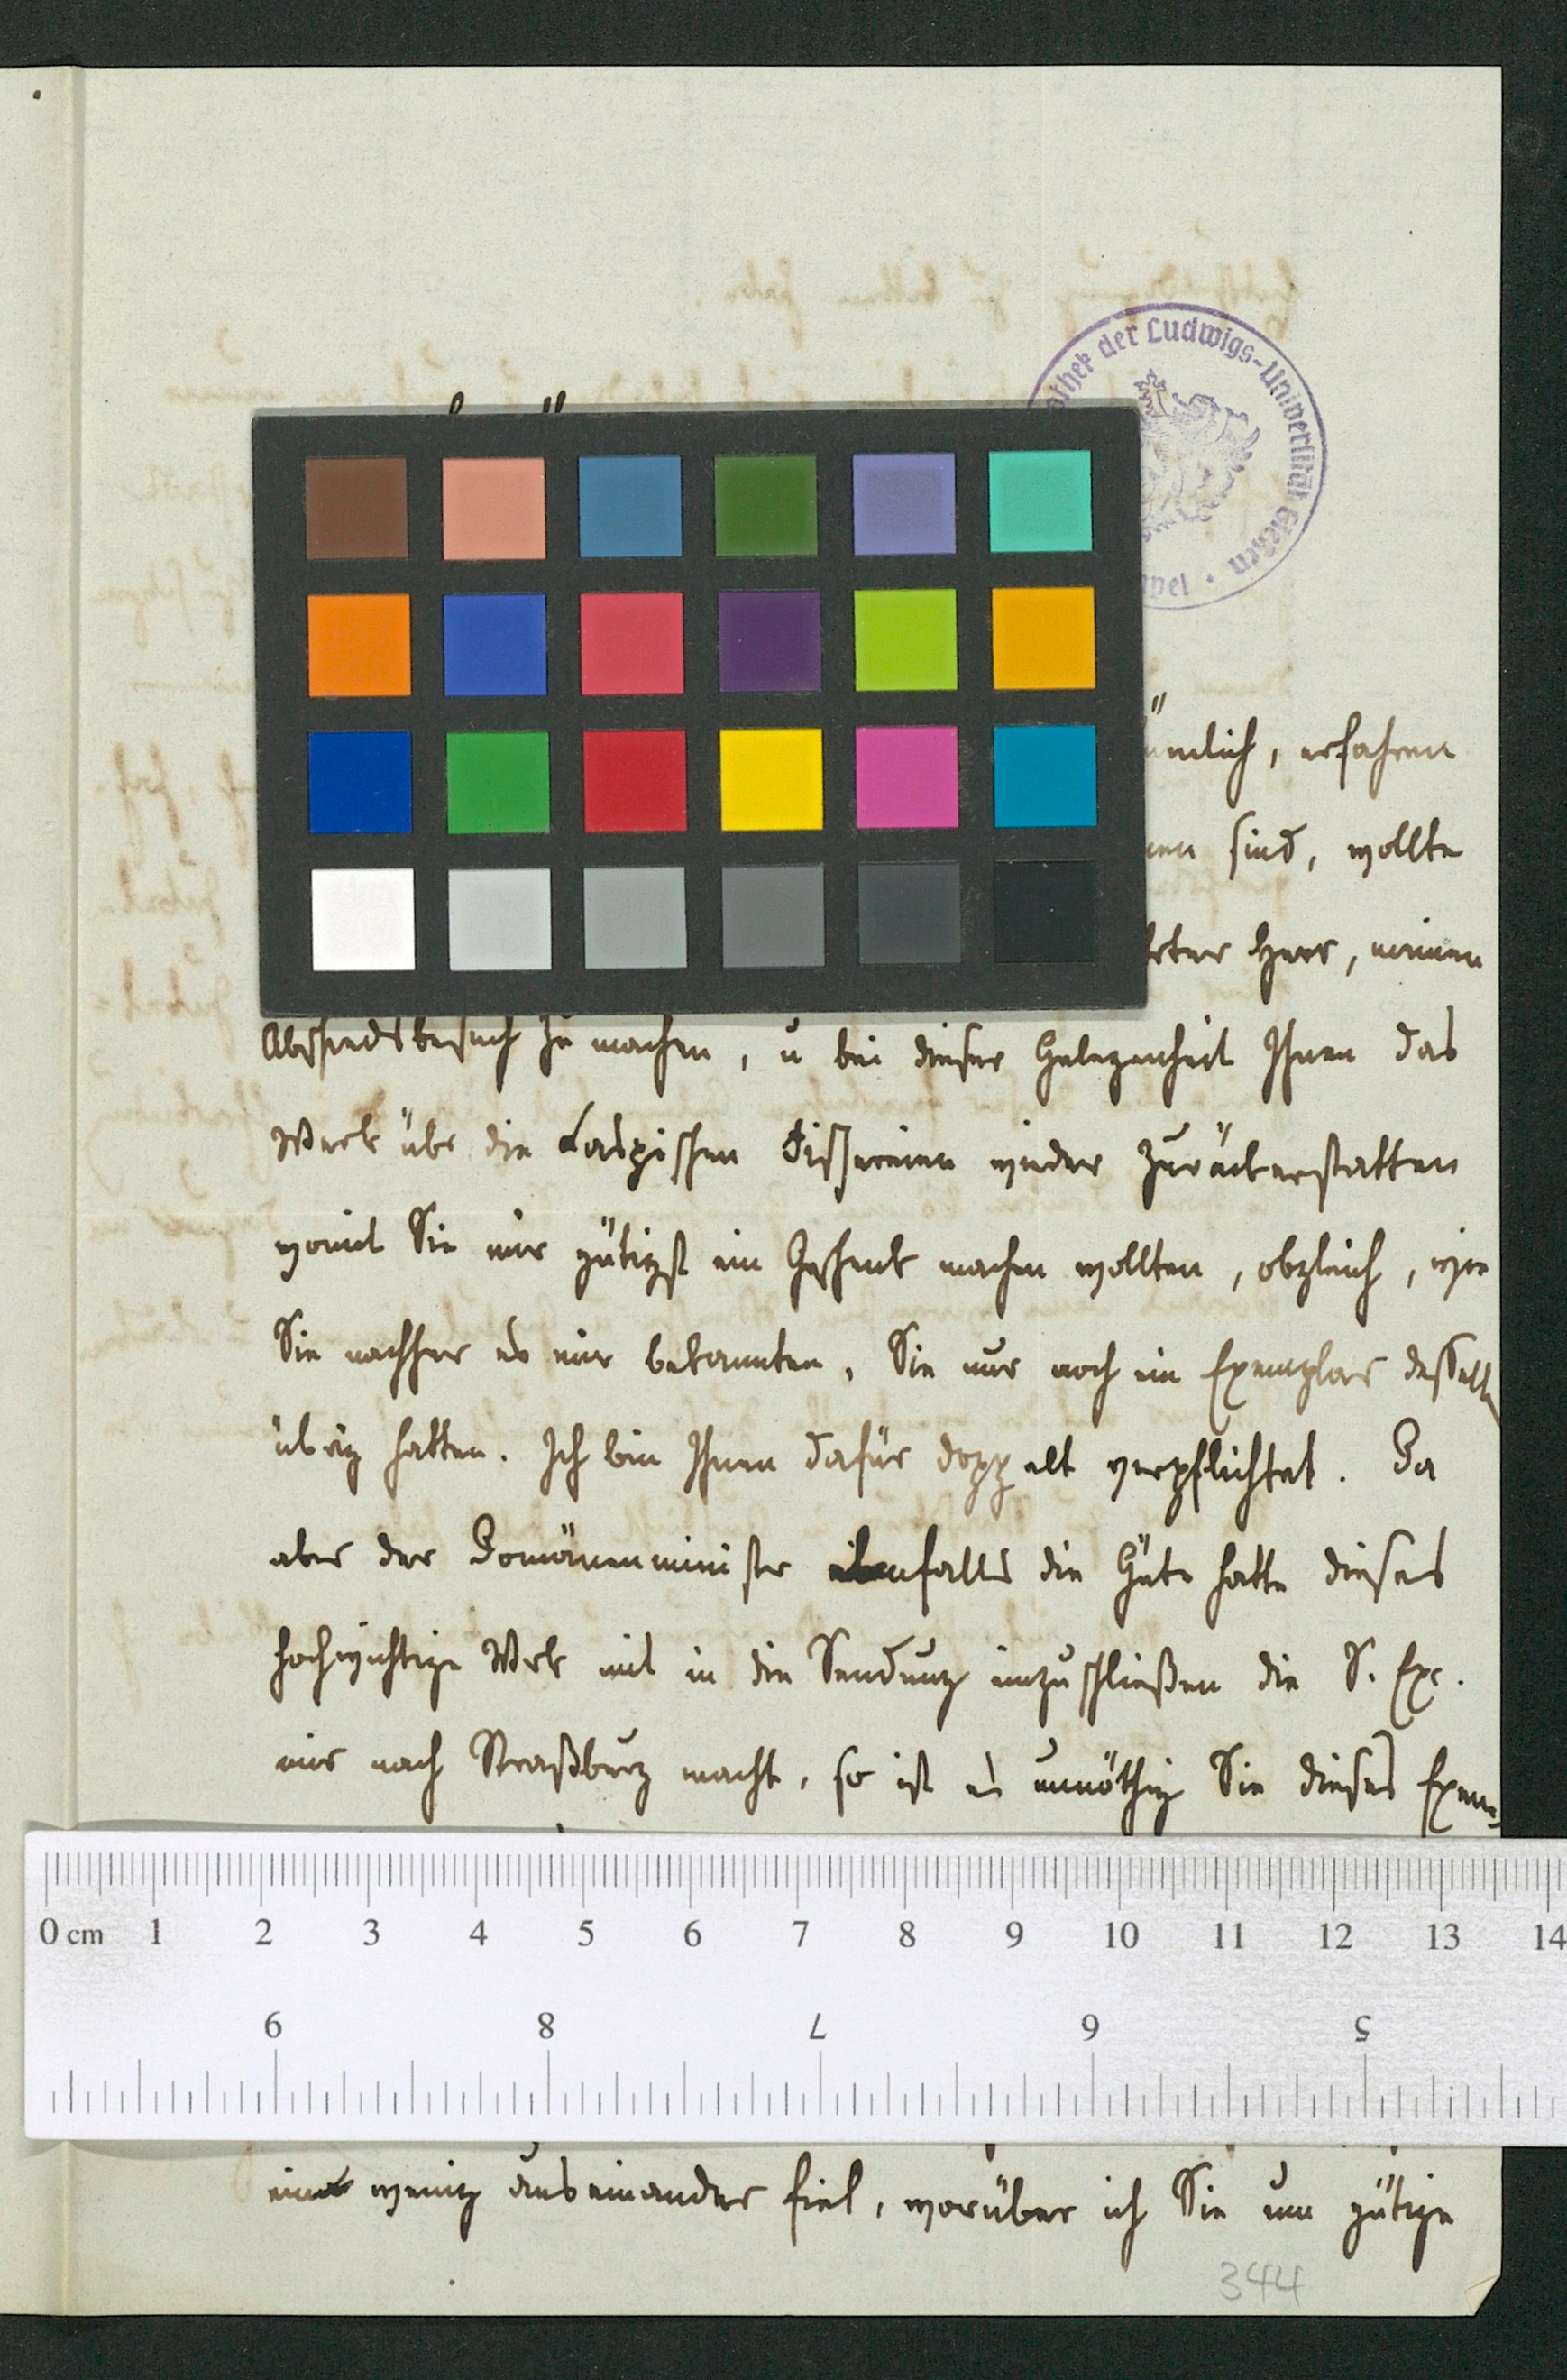 othek der Ludwigs-Universität Giessen ·
ümlich, erfahren
nen sind, wollte
hrter Herr, meinen
Abschiedsbesuch zu machen, u bei dieser Gelegenheit Ihnen das
Werk über die Kaspischen Fischereien wieder zurückerstatten
womit Sie mir gütigst ein Geschenk machen wollten, obgleich, wie
Sie nachher es mir bekannten, Sie nur noch ein Exemplar desselben
übrig hatten. Ich bin Ihnen dafür doppelt verpflichtet. Da
aber der Domänenminister ebenfalls die Güte hatte dieses
hochwichtige Werk mit in die Sendung einzuschließen die S. Exc.
mir nach Straßburg macht, so ist es unnöthig Sie dieses Exem-
0 cm 1 2 3 4 5 6 7 8 9 10 11 12 13 14
9 8 7 6 5
ein wenig auseinander fiel, worüber ich Sie um gütige
344